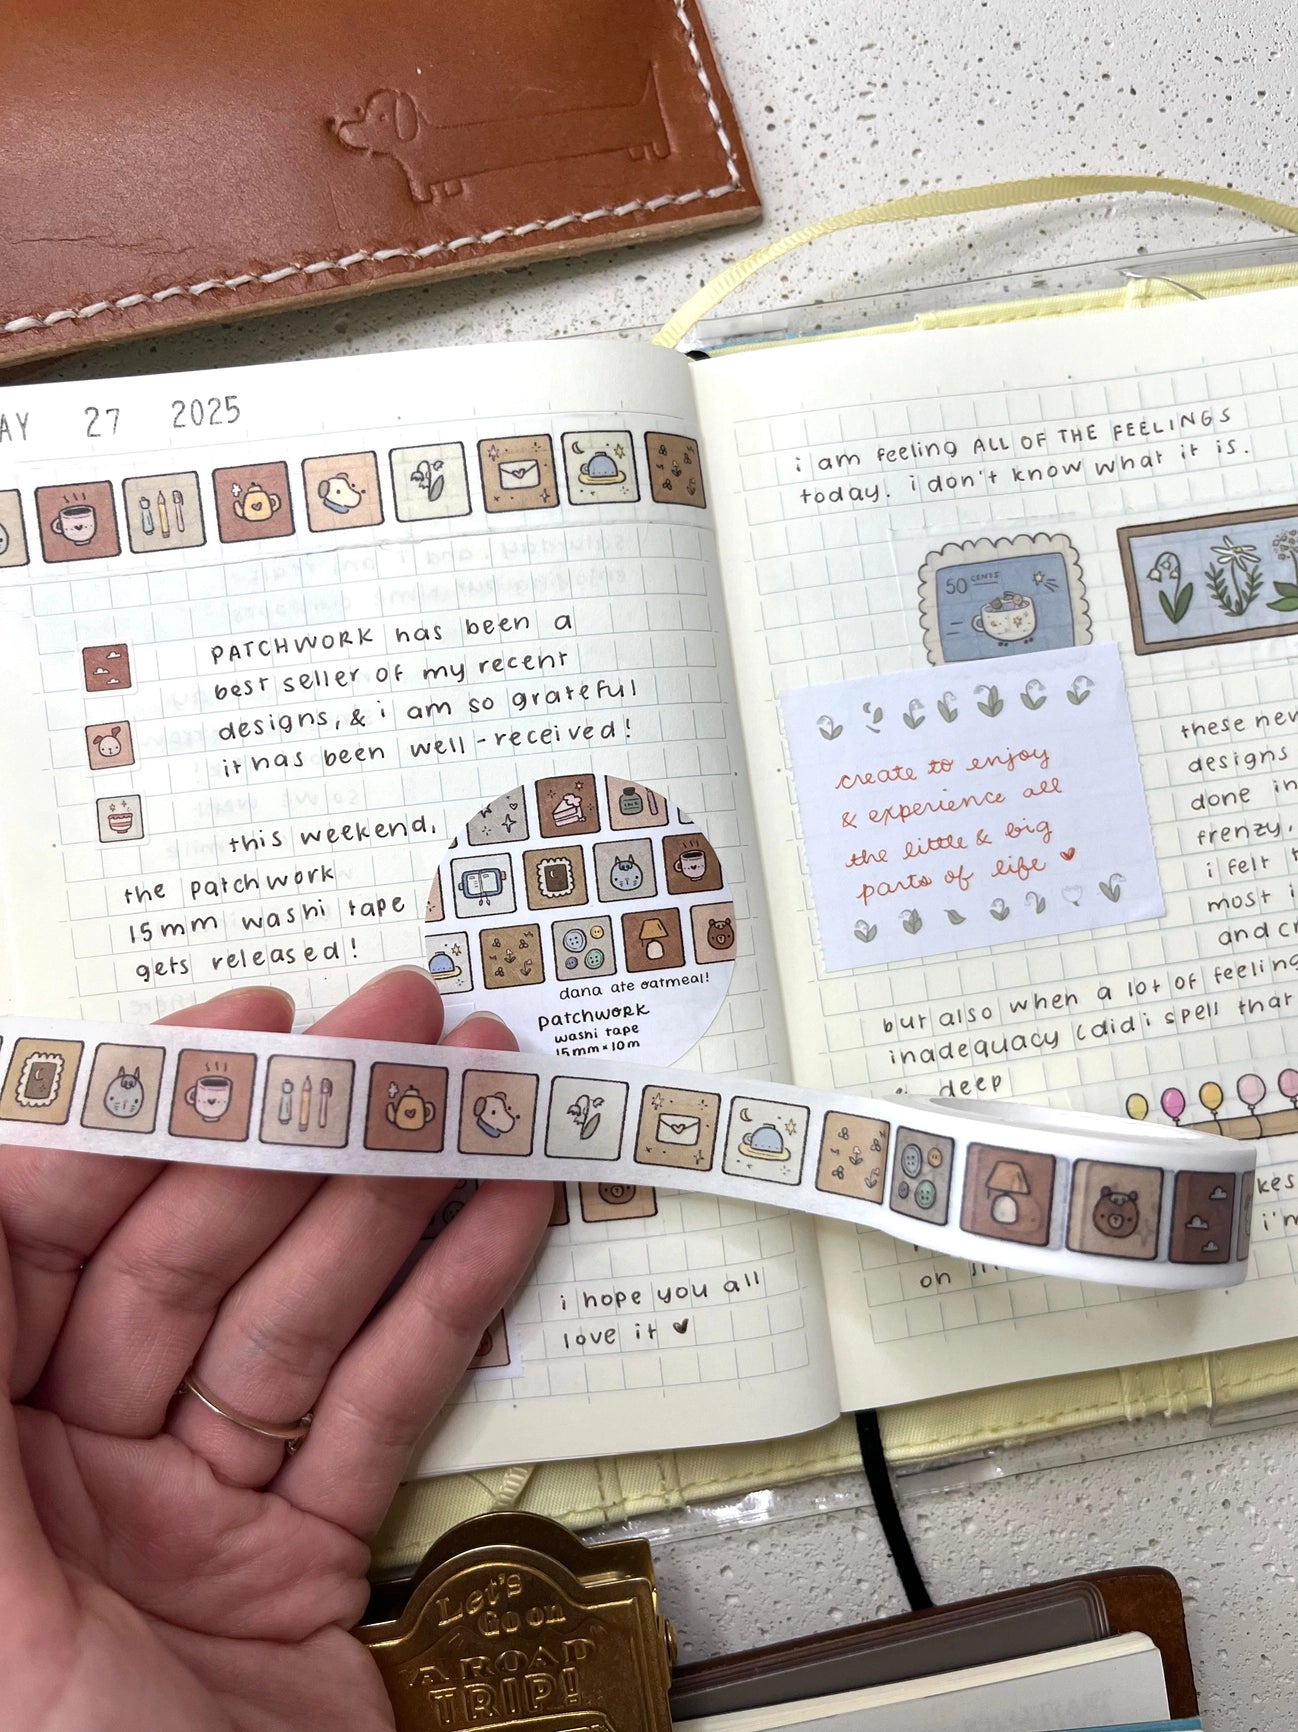 27 2025
PATCHWORK has been a
best seller of my recent
designs, & i am so grateful
it has been well-received!
this weekend,
the patchwork
15mm washi tape
gets released!
INK
dana ate oatmeal!
patchwork
washi tape
15mm × 10m
i hope you all
love it ♥
i am feeling ALL OF THE FEELINGS
today. i don't know what it is.
50 CENTS
create to enjoy
& experience all
the little & big
parts of life ♥
these new
designs
done in
frenzy.
i felt
most
and
but also when a lot of feeling
inadequacy (did i spell that
deep
i'm
on
Let's
Go on
A ROAD
TRIP!